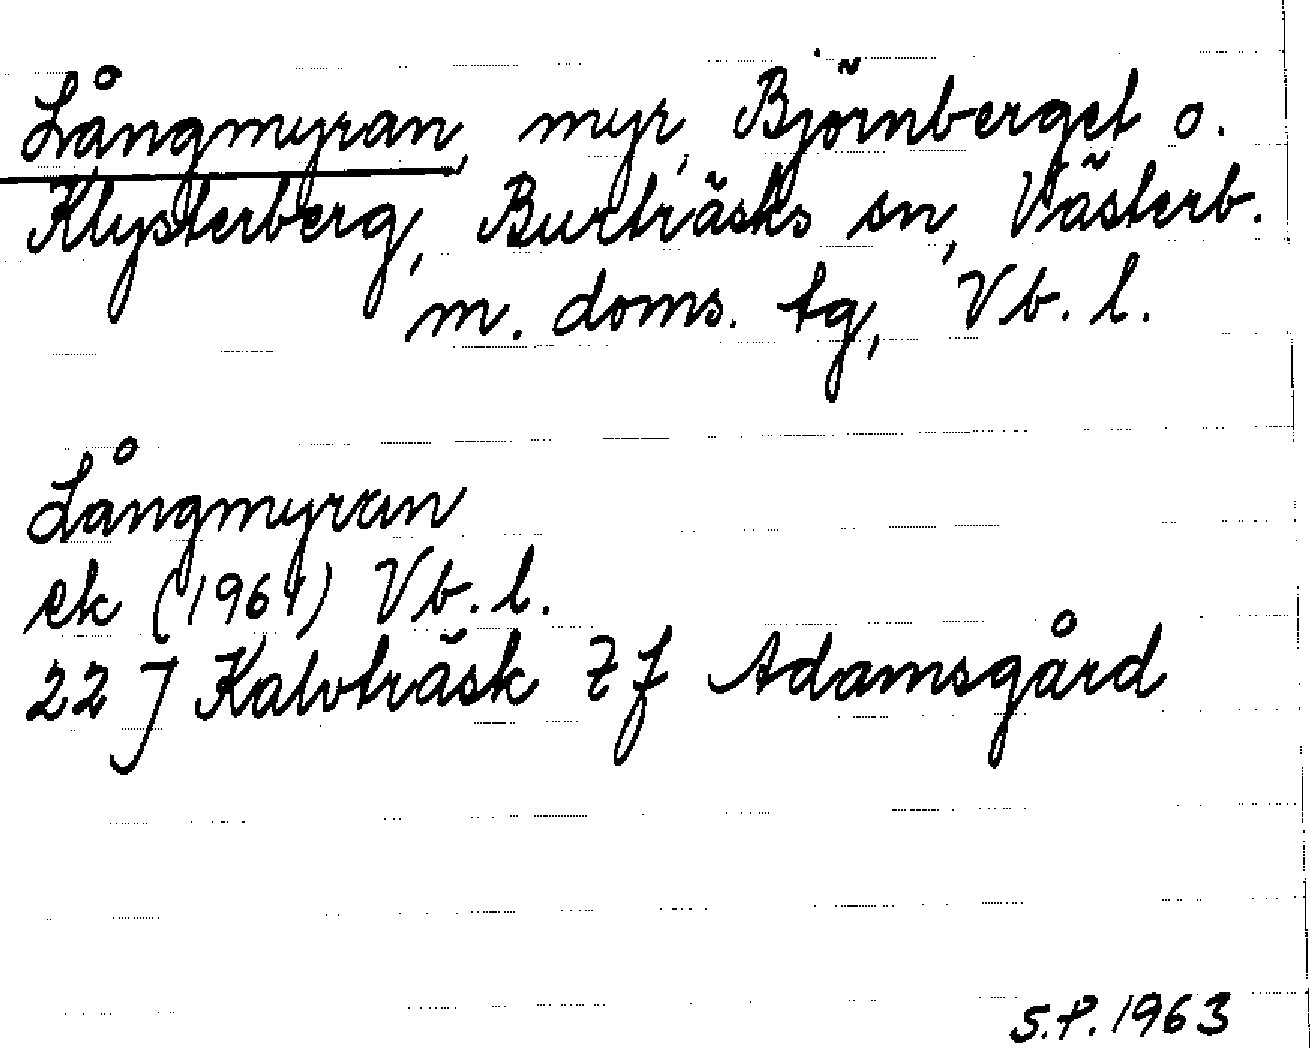 Långmyran, myr, Björnberget o.
Klysterberg, Burträsks sn, Västerb.
m. doms. tg, Vb. l.
Långmyran
ek (1961) Vb. l.
22 J Kalvträsk 7 f Adamsgård
S.P. 1963